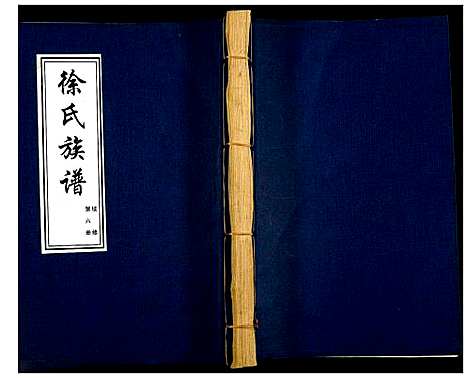 徐氏族谱
续修
第六册